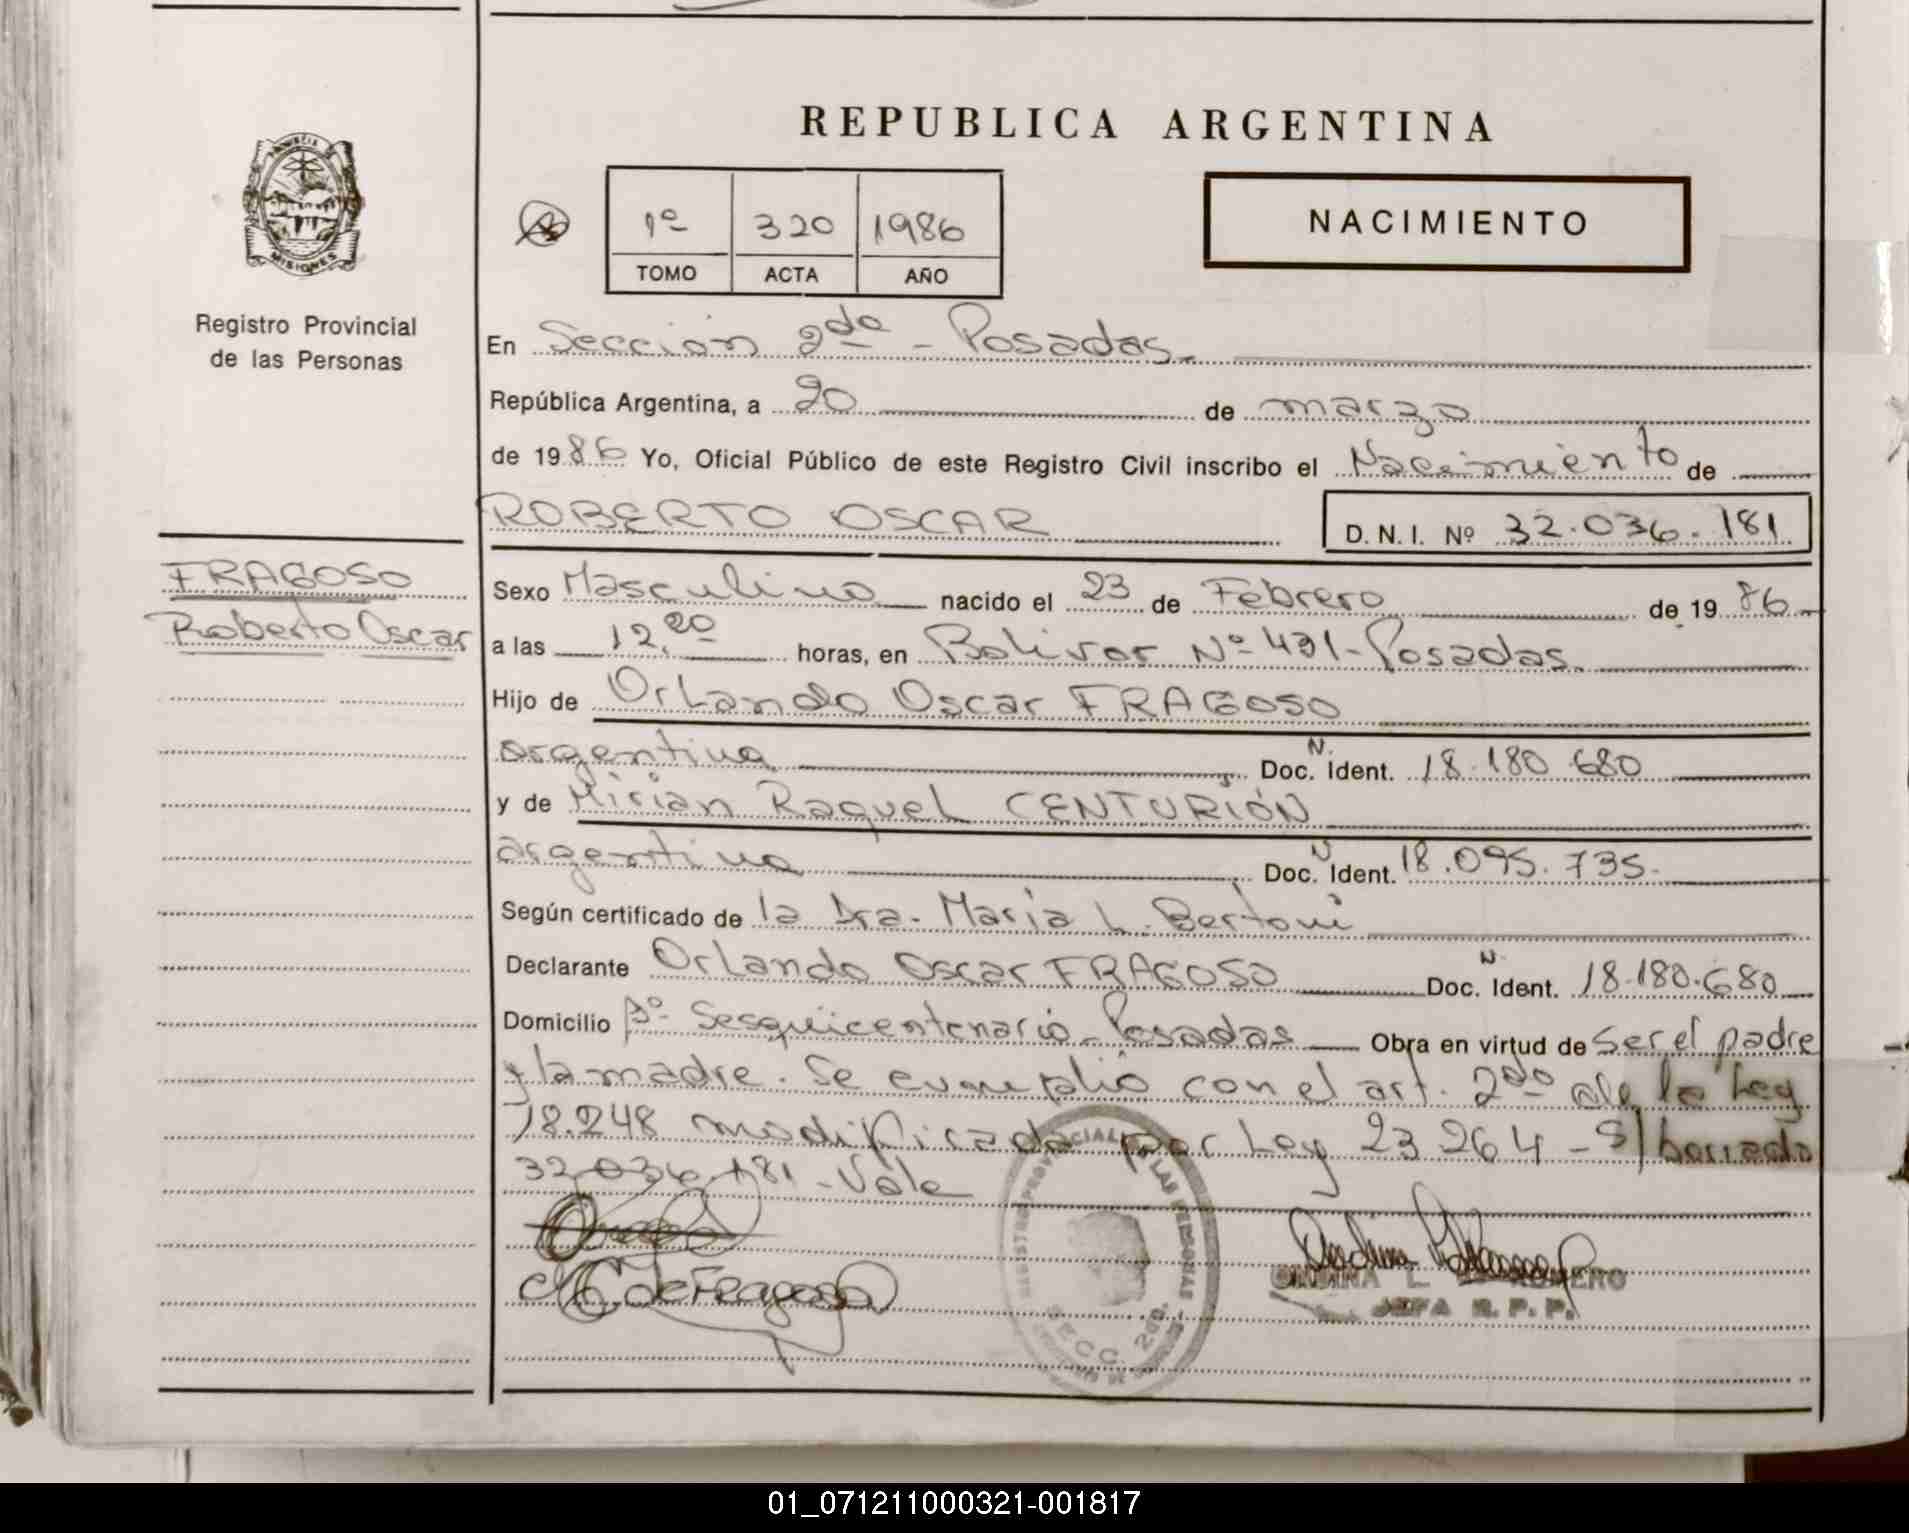 REPUBLICA ARGENTINA
MISIONES
Registro Provincial
de las Personas
1º 320 1986
TOMO ACTA AÑO
NACIMIENTO
En Sección 2da - Posadas.
República Argentina, a 20 de marzo
de 1986 Yo, Oficial Público de este Registro Civil inscribo el Nacimiento de
ROBERTO OSCAR D. N. I. Nº 32.036.181
FRAGOSO
Roberto Oscar
Sexo Masculino nacido el 23 de Febrero de 1986
a las 12,20 horas, en Bolivar Nº 431-Posadas.
Hijo de Orlando Oscar FRAGOSO
argentina N. Doc. Ident. 18.180.680
y de Mirian Raquel CENTURIÓN
argentina N Doc. Ident. 18.095.735.
Según certificado de la Dra. Maria L. Bertoni
Declarante Orlando Oscar FRAGOSO N. Doc. Ident. 18.180.680
Domicilio Bº Sesquicentenario - Posadas Obra en virtud de ser el padre
y la madre. Se cumplió con el art. 2do de la Ley
18.248 modificada por Ley 23 264 - S/ borrado
32 036 181 - Vale
M C de Fragoso
SECC. 2da.
JEFA R. P. P.
01_071211000321-001817